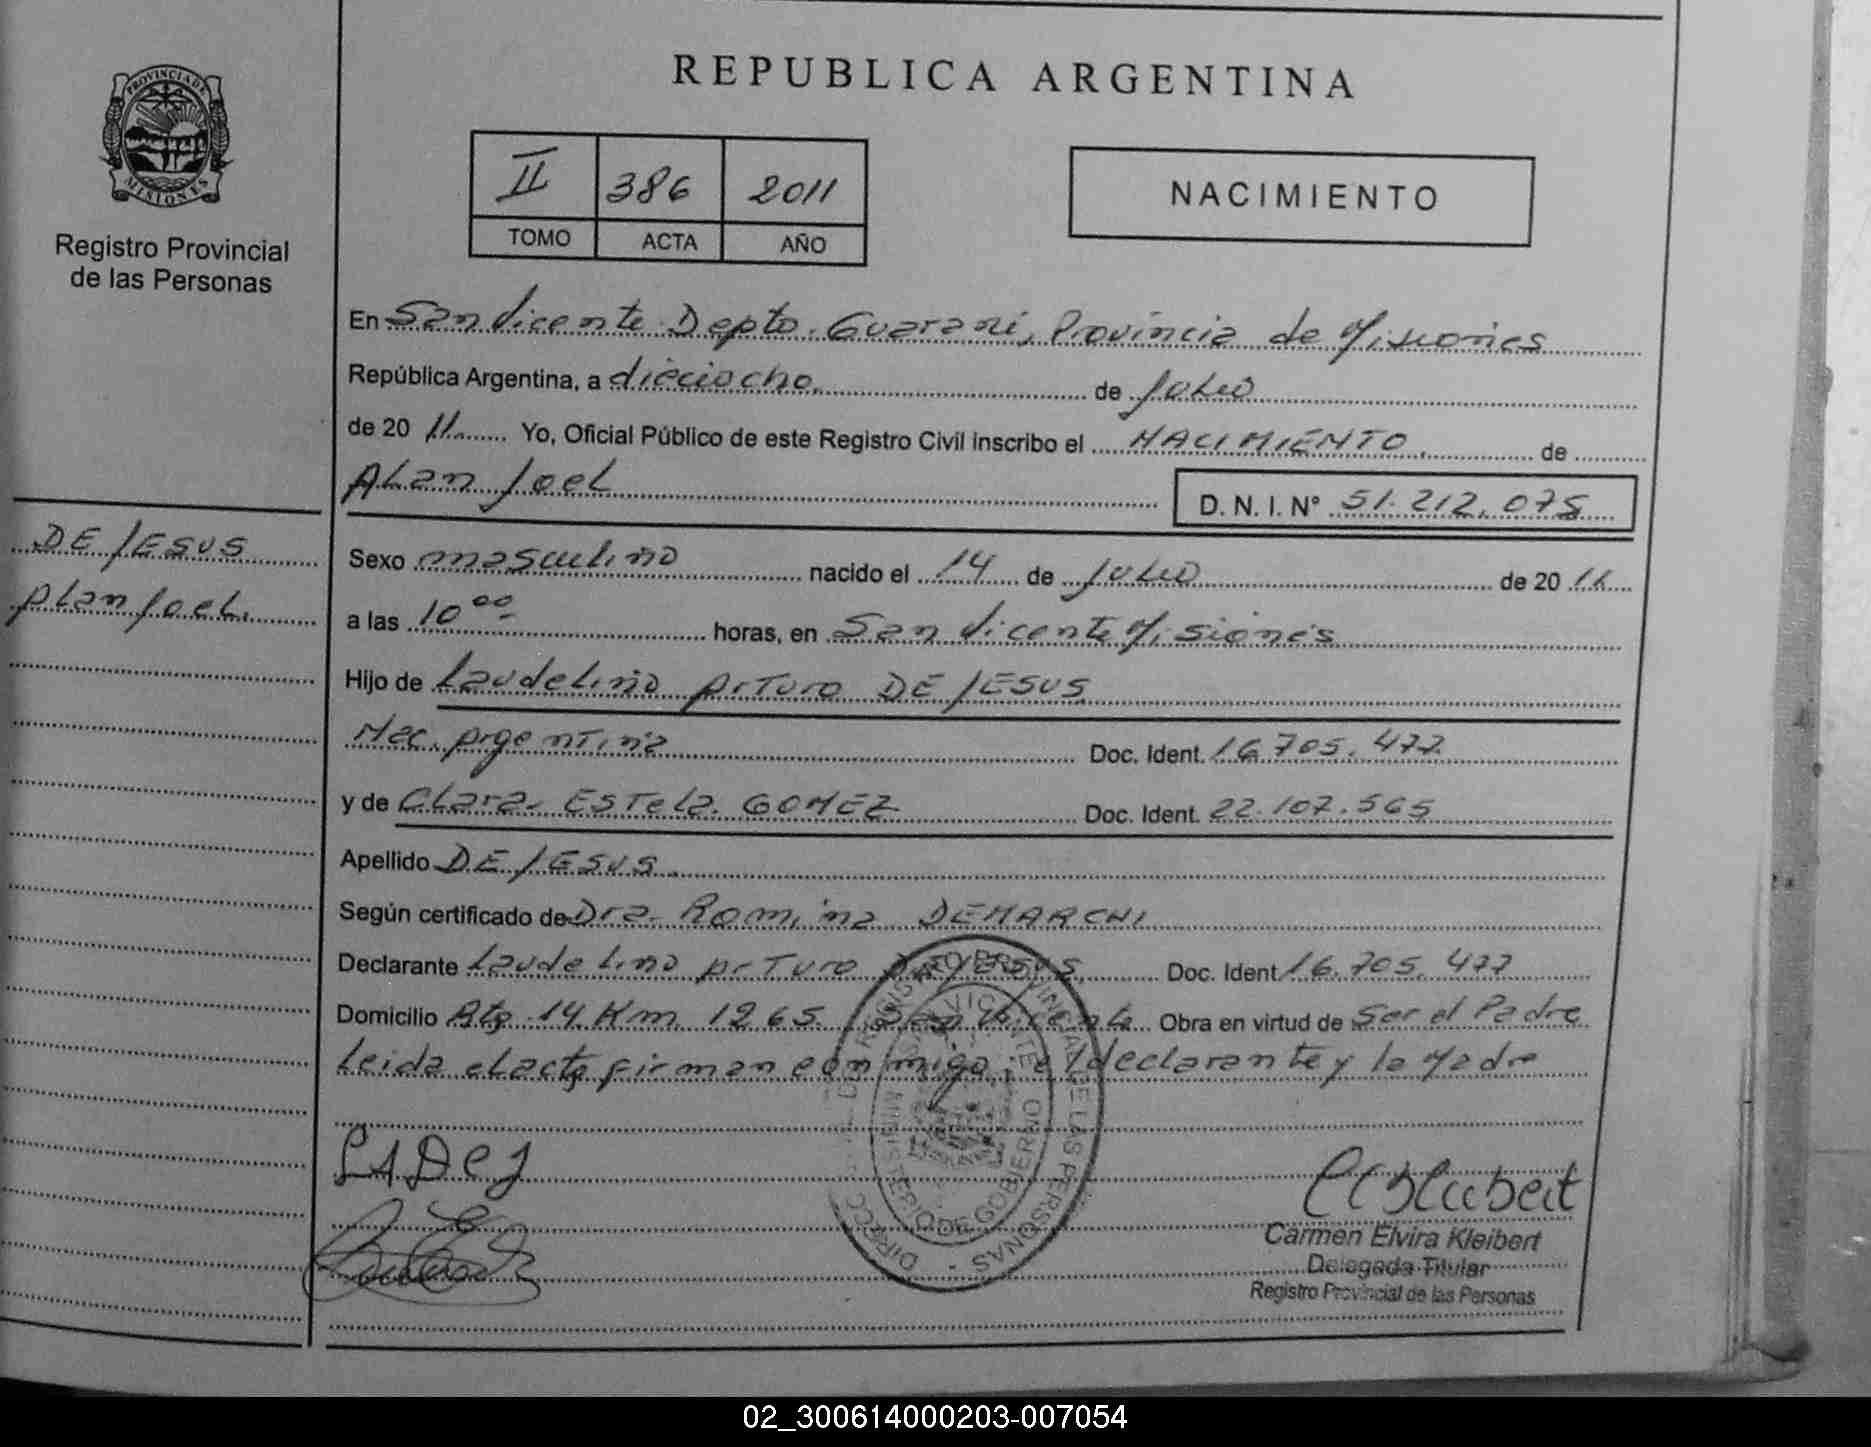 REPUBLICA ARGENTINA
PROVINCIA DE
MISIONES
Registro Provincial
de las Personas
II 386 2011
TOMO ACTA AÑO
NACIMIENTO
En San Vicente Depto. Guarani, Provincia de Misiones
República Argentina, a dieciocho de Julio
de 20 11 Yo, Oficial Público de este Registro Civil inscribo el NACIMIENTO de
Alan Joel D. N. I. N° 51.212.075
DE JESUS
Alan Joel.
Sexo masculino nacido el 14 de Julio de 20 11
a las 10 00 horas, en San Vicente Misiones
Hijo de Laudelino Arturo DE JESUS
Nac. Argentina Doc. Ident. 16.705.477
y de Clara Estela GOMEZ Doc. Ident. 22.107.565
Apellido DE JESUS
Según certificado de Dra. Romina DEMARCHI
Declarante Laudelino Arturo DE JESUS Doc. Ident 16.705.477
Domicilio Rta 14 Km 1265 San Vicente Obra en virtud de Ser el Padre
Leida el acta firman conmigo el declarante y la Madre
REGISTRO PROVINCIAL DE LAS PERSONAS
SAN VICENTE
MINISTERIO DE GOBIERNO
LADeJ
Carmen Elvira Kleibert
Delegada Titular
Registro Provincial de las Personas
02_300614000203-007054